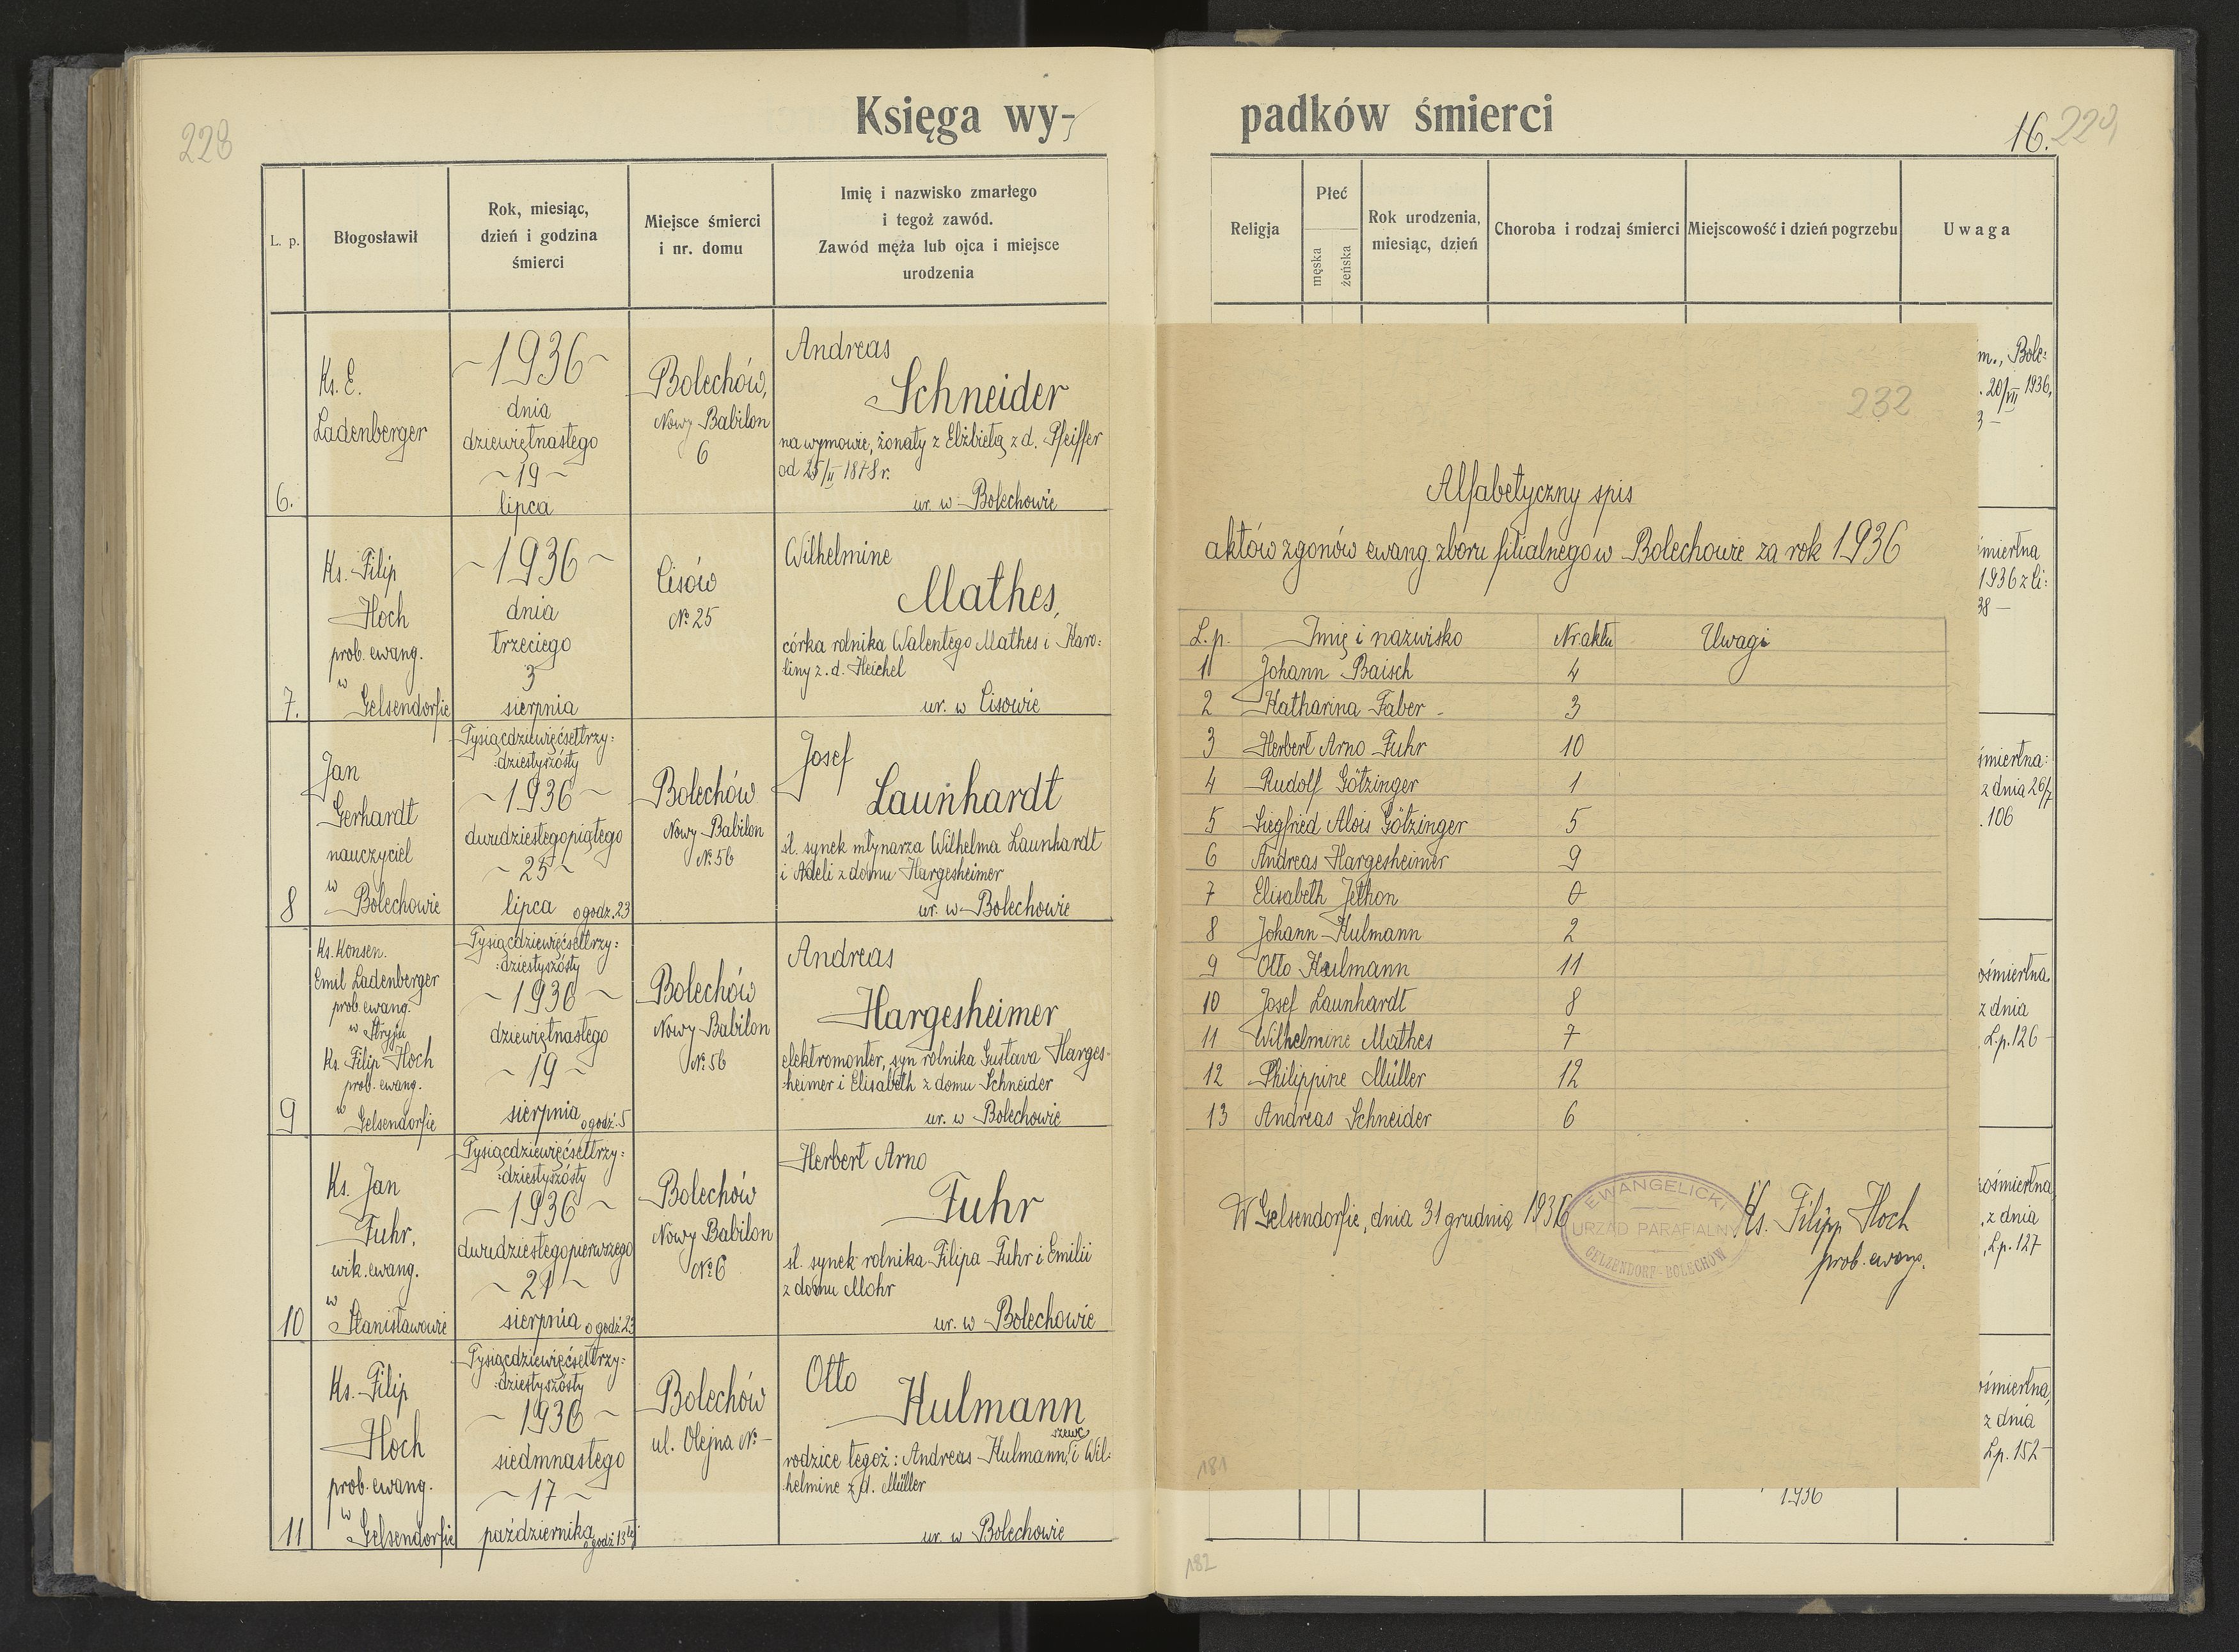 228
Księga wy-
L. p.
Błogosławił
Rok, miesiąc,
dzień i godzina
śmierci
Miejsce śmierci
i nr. domu
Imię i nazwisko zmarłego
i tegoż zawód.
Zawód męża lub ojca i miejsce
urodzenia
6.
Ks. E.
Ladenberger
~1936~
dnia
dziewiętnastego
~19~
lipca
Bolechów,
Nowy Babilon
6
Andreas
Schneider
na wymowie, żonaty z Elżbietą z d. Pfeiffer
od 25/II 1878 r.
ur. w Bolechowie
7.
Ks. Filip
Hoch
prob. ewang.
w
Gelsendorfie
~1936~
dnia
trzeciego
3
sierpnia
Cisów
№ 25
Wilhelmine
Mathes,
córka rolnika Walentego Mathes i Karo:
liny z. d. Heichel
ur. w Cisowie
8
Jan
Gerhardt
nauczyciel
w
Bolechowie
Tysiącdziewięćsettrzy:
:dziestyszósty
~1936~
dwudziestegopiątego
~25~
lipca o godz. 23
Bolechów
Nowy Babilon
№ 56
Josef
Launhardt
śl. synek młynarza Wilhelma Launhardt
i Adeli z domu Hargesheimer
ur. w Bolechowie
9
Ks. Konsen.
Emil Ladenberger
prob. ewang.
w Stryju
Ks. Filip Hoch
prob. ewang.
w
Gelsendorfie
Tysiącdziewięćsettrzy:
:dziestyszósty
~1936~
dziewiętnastego
~19~
sierpnia o godz. 5
Bolechów
Nowy Babilon
№ 56
Andreas
Hargesheimer
elektromonter, syn rolnika Gustava Harges-
-heimer i Elisabeth z domu Schneider
ur. w Bolechowie
10
Ks. Jan
Fuhr,
wik. ewang.
w
Stanisławowie
Tysiącdziewięćsettrzy:
:dziestyszósty
~1936~
dwudziestegopierwszego
~21~
sierpnia o godz 23
Bolechów
Nowy Babilon
№ 6
Herbert Arno
Fuhr
śl. synek rolnika Filipa Fuhr i Emilii
z domu Mohr
ur. w Bolechowie
11
Ks. Filip
Hoch
prob. ewang.
w
Gelsendorfie
Tysiącdziewięćsettrzy:
:dziestyszósty
~1936~
siedmnastego
~17~
października o godz 13tej
Bolechów
ul. Olejna № -
Otto
Kulmann
szewc
rodzice tegoż: Andreas Kulmann, i Wil:
helmine z d. Müller
ur. w Bolechowie
padków śmierci
16. 229
Religja
Płeć
męska
żeńska
Rok urodzenia,
miesiąc, dzień
Choroba i rodzaj śmierci
Miejscowość i dzień pogrzebu
Uwaga
m., Bole:
. 20/VII 1936,
3 -
śmiertna
1936 z Ci:
38 -
śmiertna:
z dnia 26/7
. 106
ośmiertna
z dnia
, L.p. 126 -
ośmiertna
, z dnia
, L.p. 127
ośmiertna,
z dnia
L.p. 152 -
1936
232
Alfabetyczny spis
aktów zgonów ewang. zboru filialnego w Bolechowie za rok 1936
L. p. Imię i nazwisko Nr. aktu Uwagi
1 Johann Baisch 4
2 Katharina Faber - 3
3 Herbert Arno Fuhr 10
4 Rudolf Götzinger 1
5 Siegfried Alois Götzinger 5
6 Andreas Hargesheimer 9
7 Elisabeth Jethon 0
8 Johann Kulmann 2
9 Otto Kulmann 11
10 Josef Launhardt 8
11 Wilhelmine Mathes 7
12 Philippine Müller 12
13 Andreas Schneider 6
W Gelsendorfie, dnia 31 grudnia 1936
EWANGELICKI
URZĄD PARAFIALNY
GELZENDORF-BOLECHÓW
Ks. Filipp Hoch
prob. ewang.
181
182